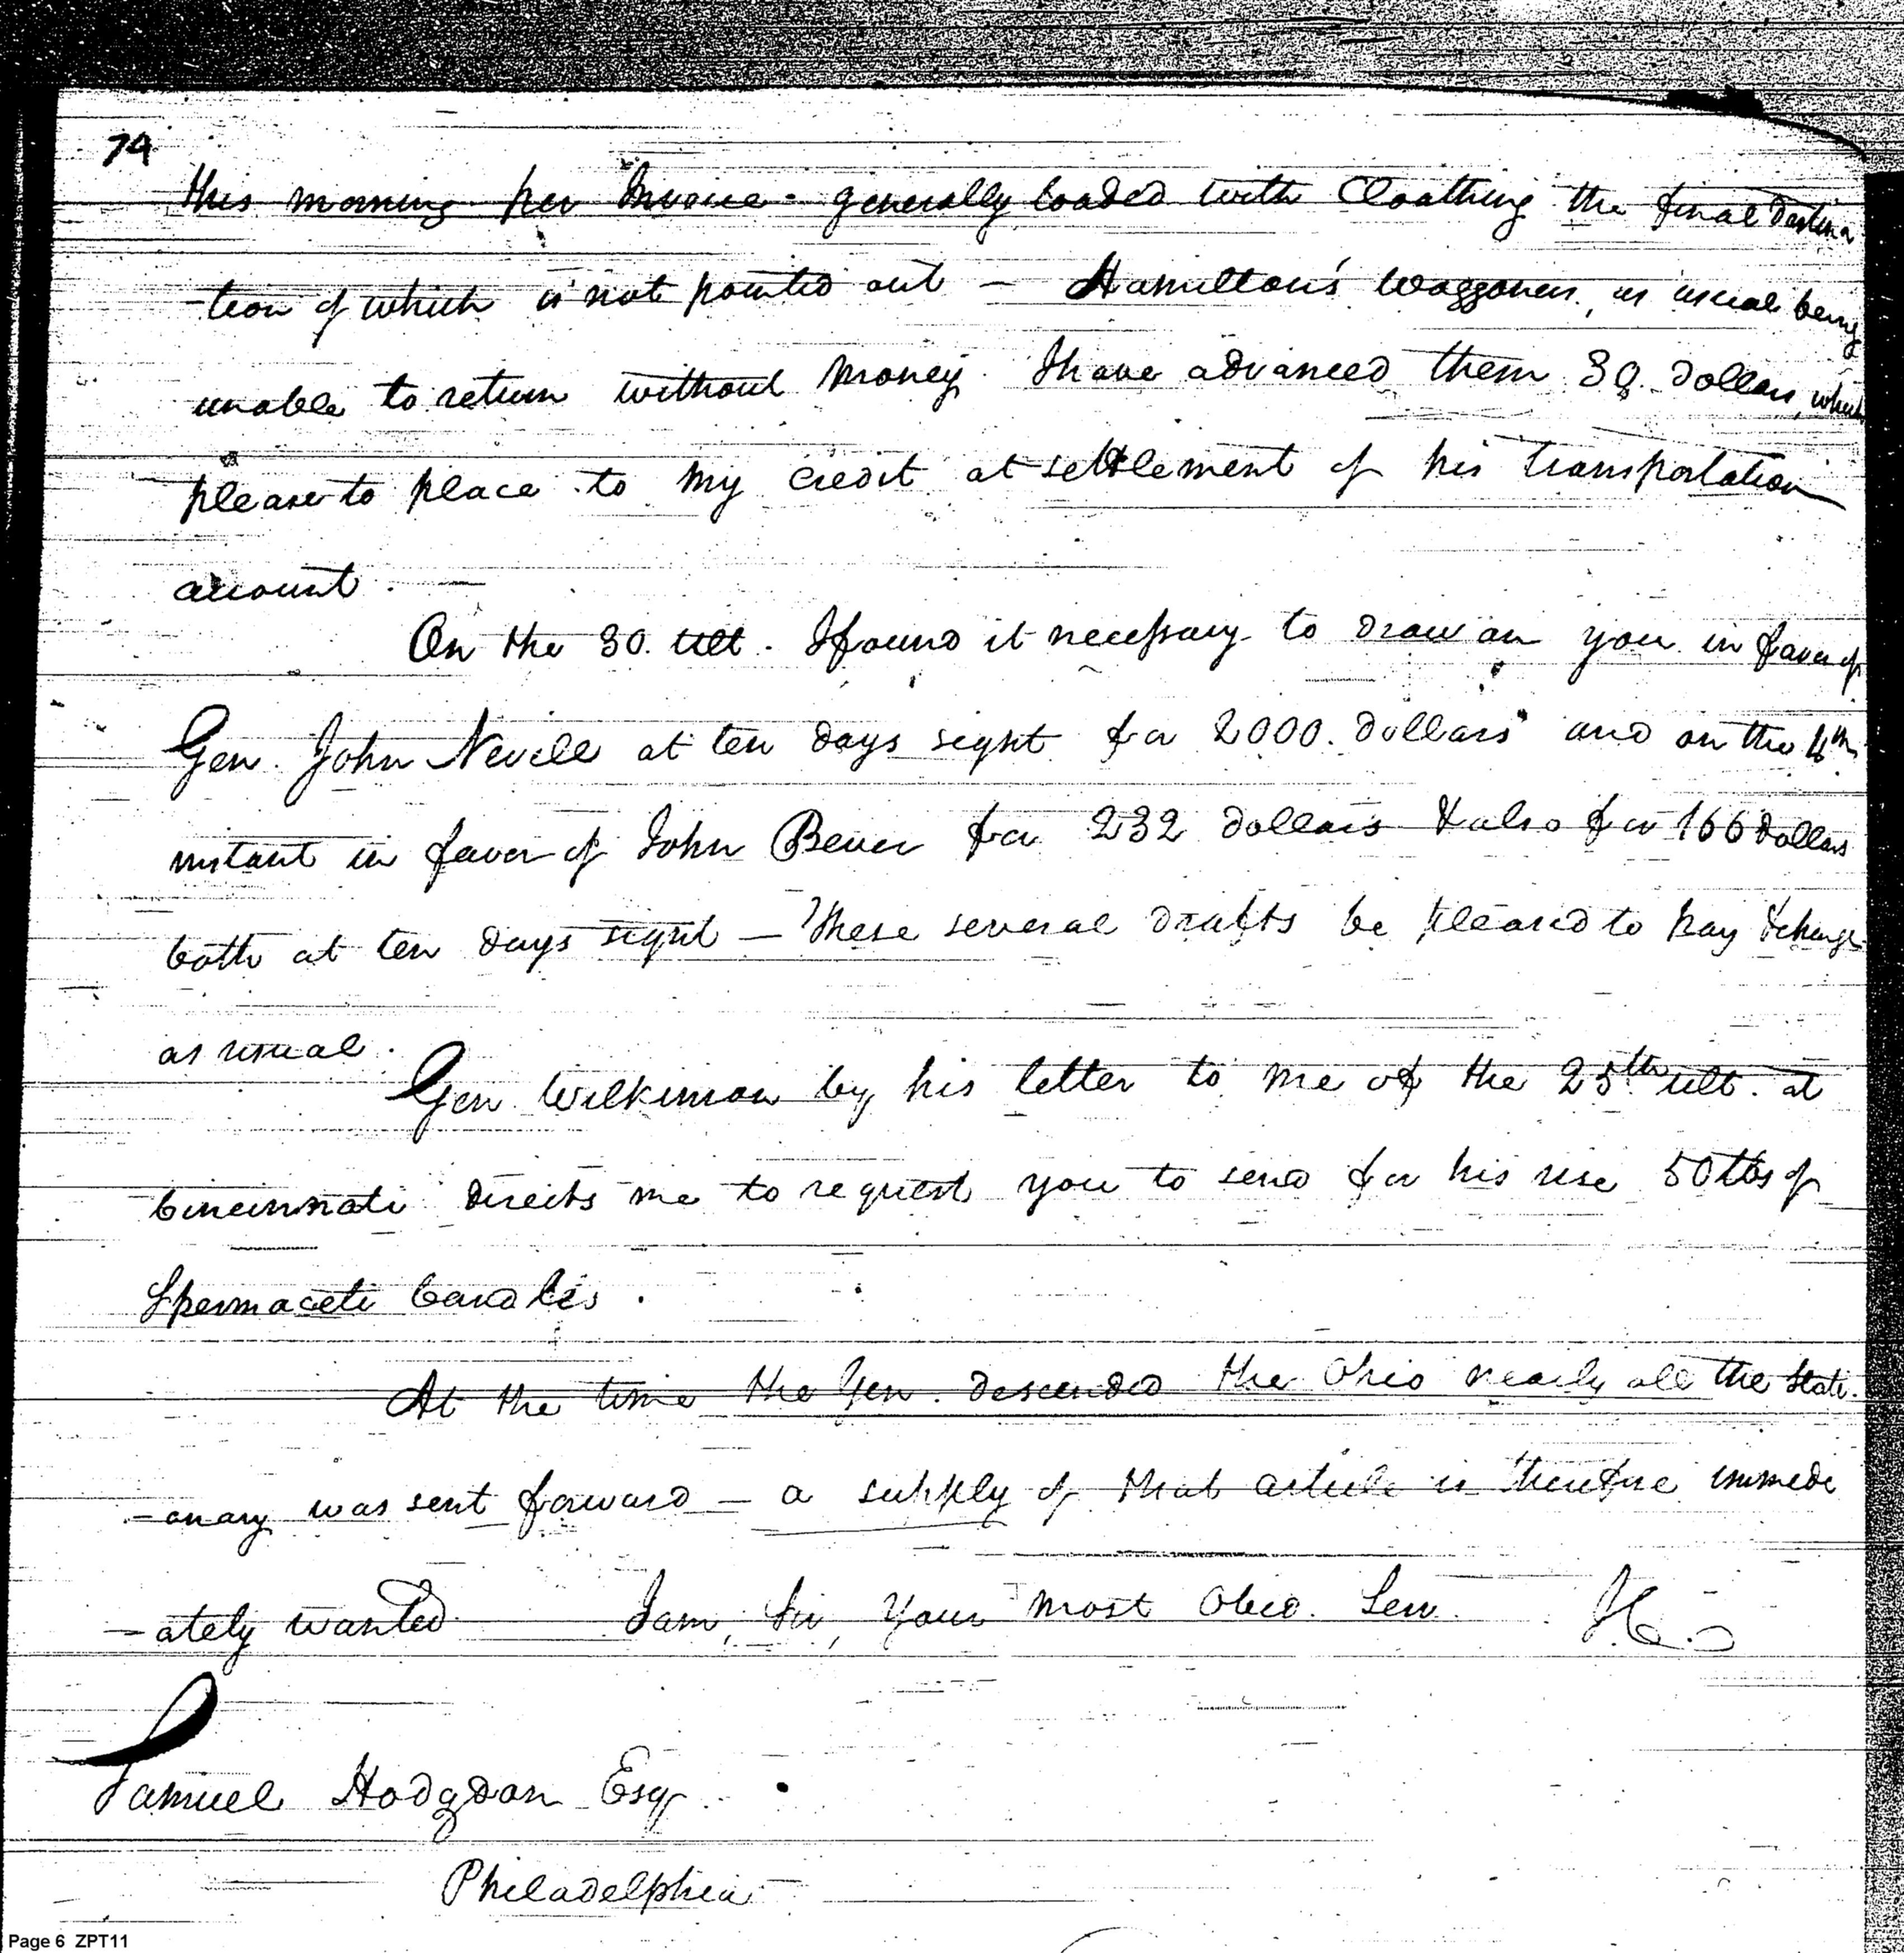 74
this morning per Invoice - generally loaded with Cloathing the final destina
-tion of which is not pointed out — Hamilton's Waggoners, as usual being
unable to return without money. I have advanced them 30 dollars, which
please to place to my credit at settlement of his transportation
account. —
On the 30. ult. I found it necessary to draw on you in favor of
Gen. John Nevill at ten days sight for 2000. dollars and on the 4th
instant in favor of John Bever for 232 dollars & also for 166 dollars
both at ten days sight — These several drafts be pleased to pay & charge
as usual.
Gen Wilkinson by his letter to me of the 25th ult. at
Cincinnati directs me to request you to send for his use 50 lbs of
Spermaceti Candles.
At the time the Gen. descended the Ohio nearly all the stati-
-onary was sent forward — a supply of that article is therefore immedi
-ately wanted I am, Sir, Your most Obed. Serv.
Samuel Hodgdon Esq.
Philadelphia
Page 6 ZPT11